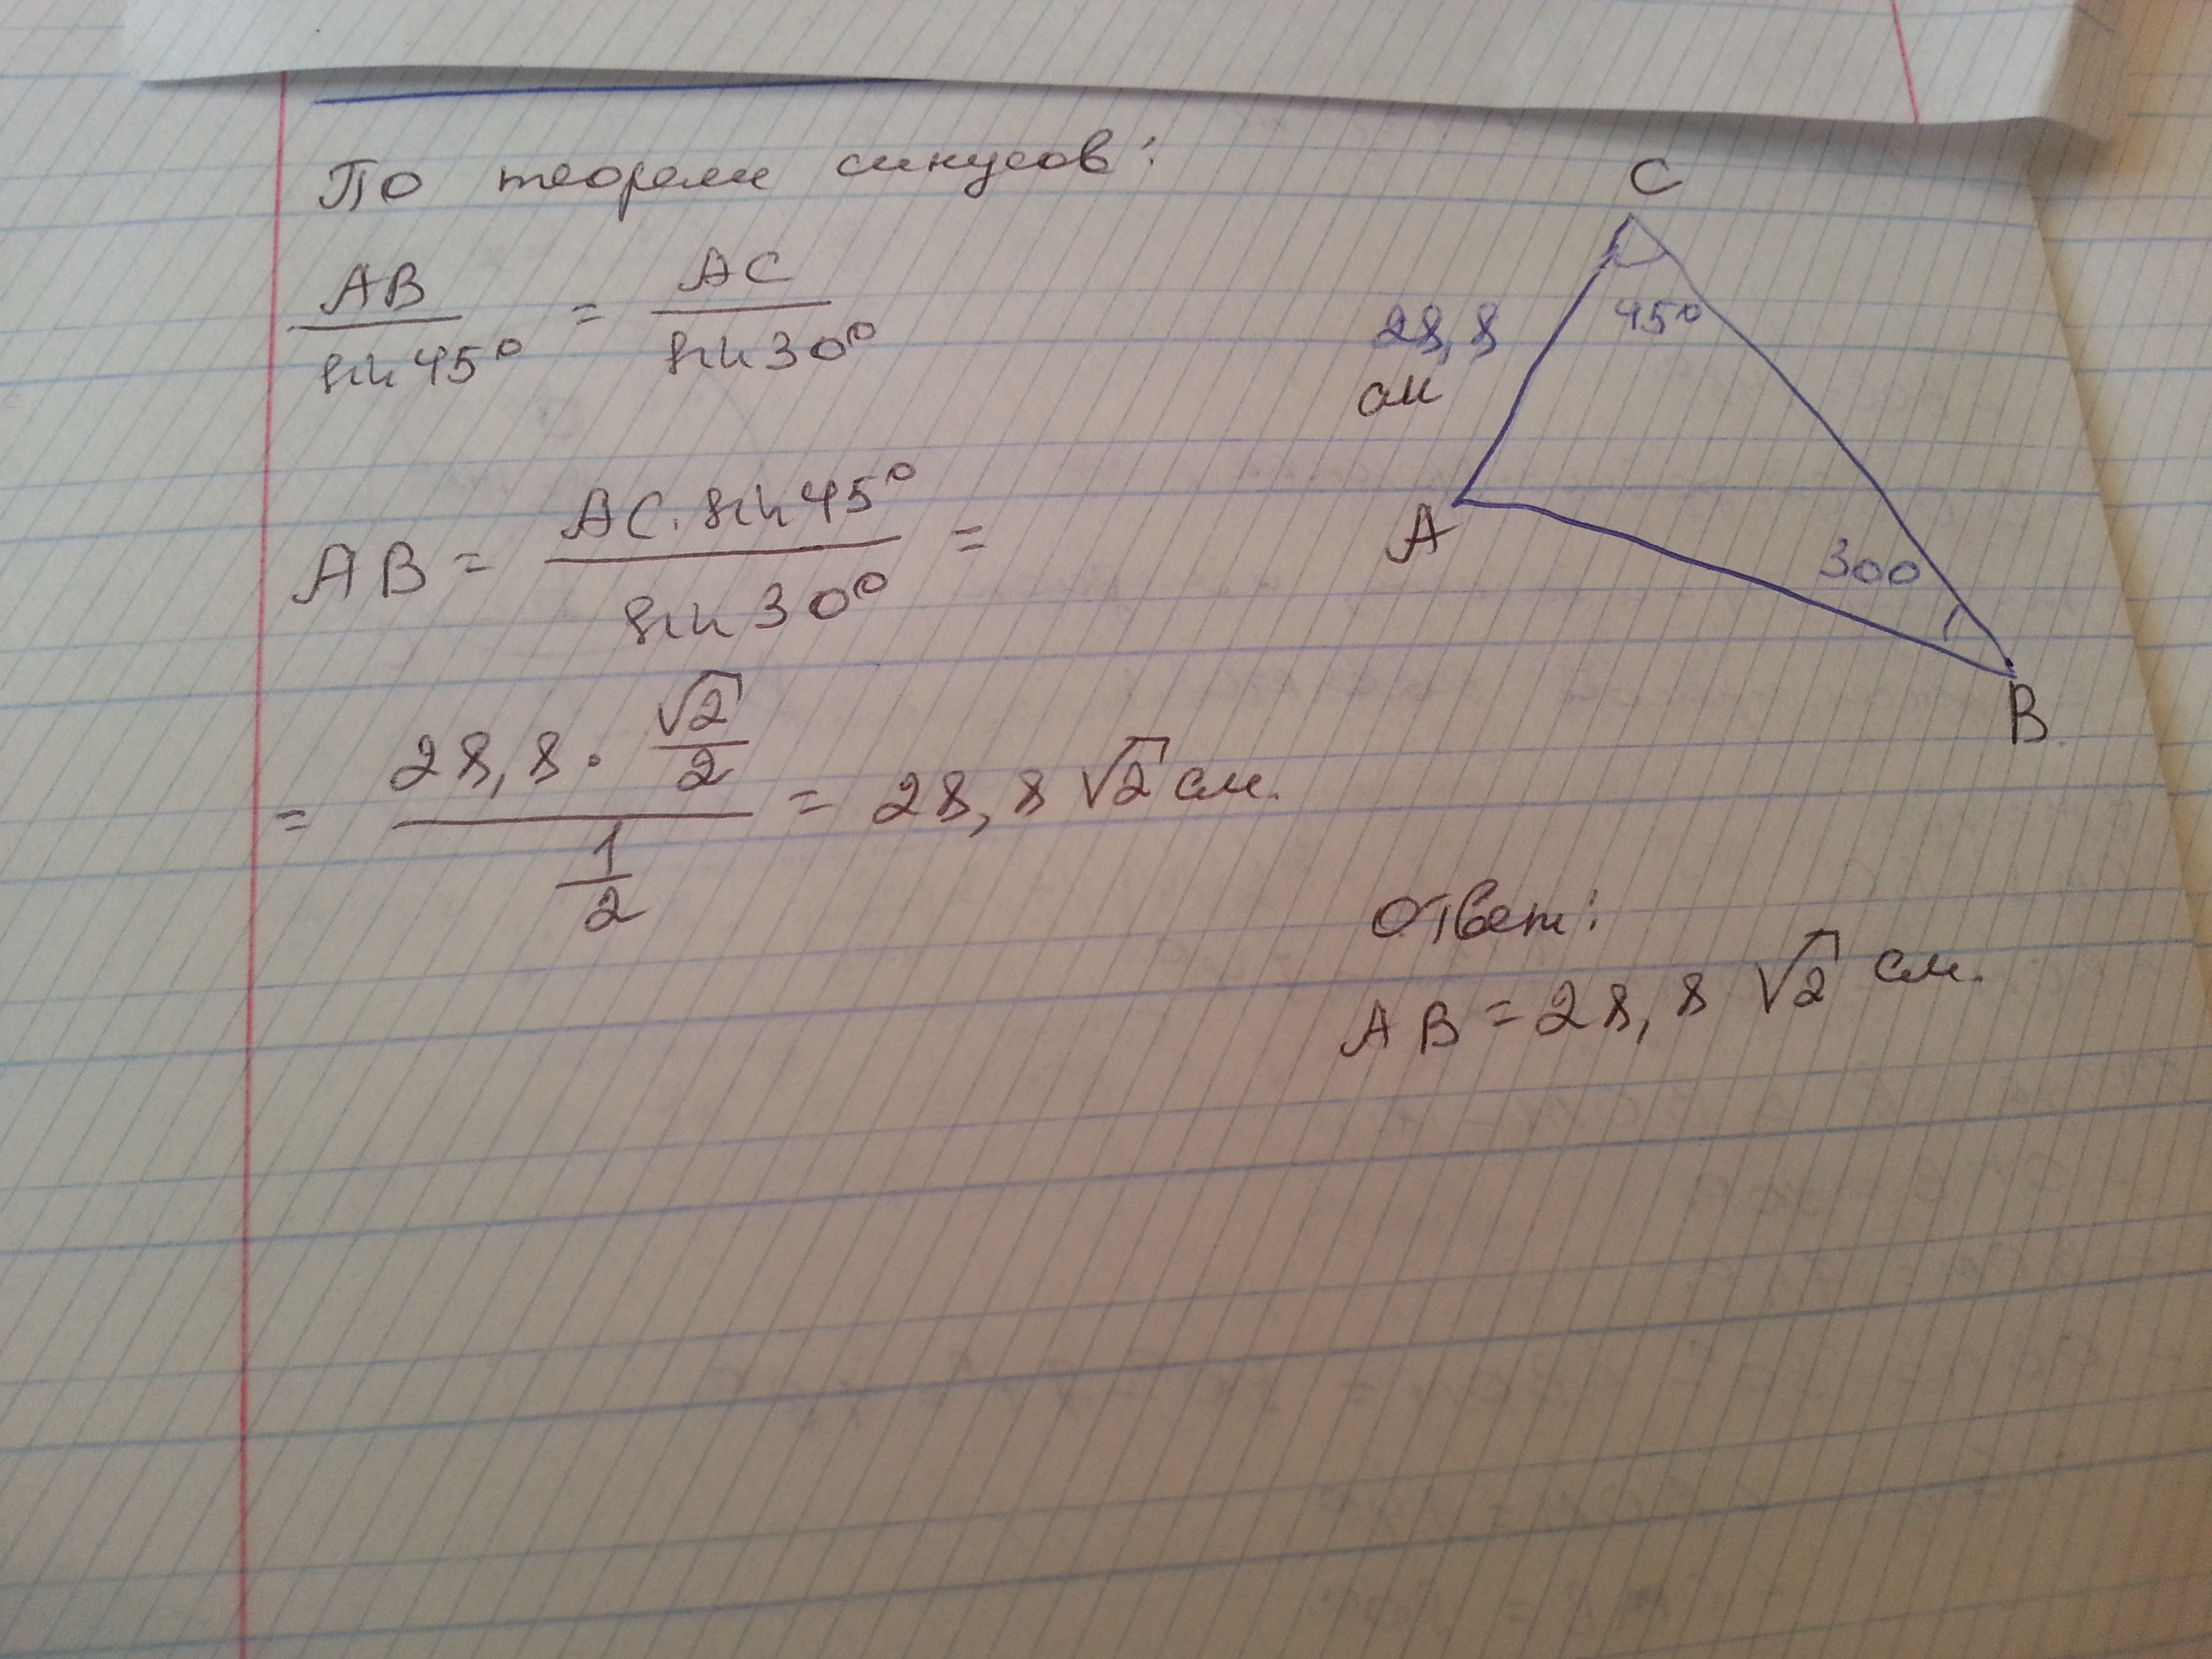 По теореме синусов:
AB/sin45° = AC/sin30°
AB = AC·sin45°/sin30° =
= 28,8·√2/2 / 1/2 = 28,8√2 см.
C
45°
28,8
см
A
30°
B
Ответ:
AB = 28,8 √2 см.